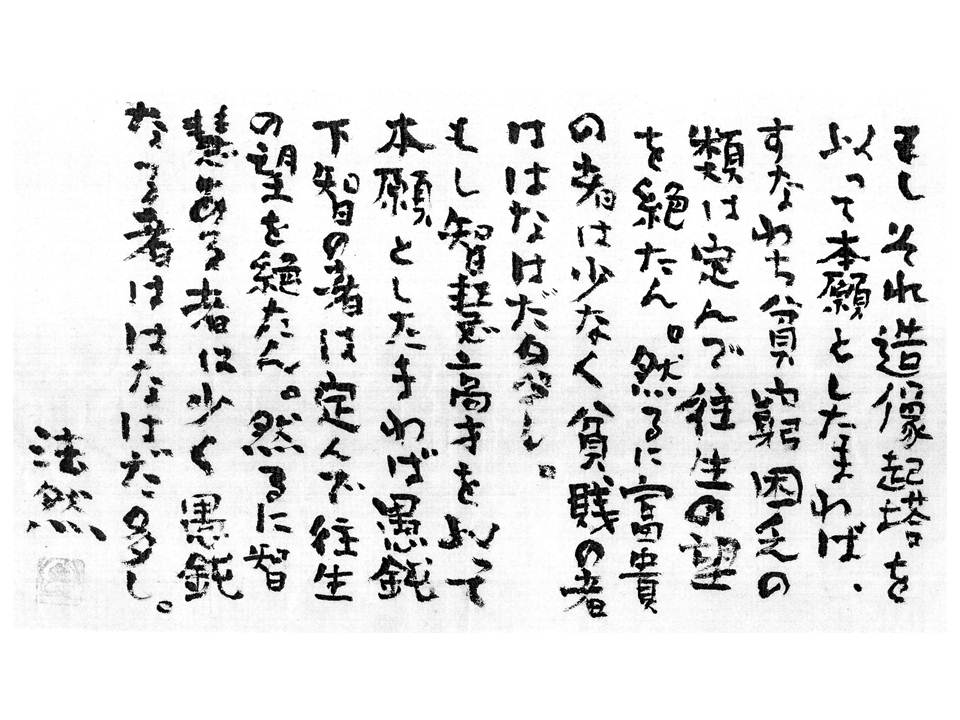 もしそれ造像起塔を
以って本願としたまわば、
すなわち貧窮困乏の
類は定んで往生の望
を絶たん。然るに富貴
の者は少なく貧賤の者
ははなはだ多し。
もし智慧高才を以って
本願としたまわば愚鈍
下智の者は定んで往生
の望を絶たん。然るに智
慧ある者は少く愚鈍
なる者ははなはだ多し。
法然